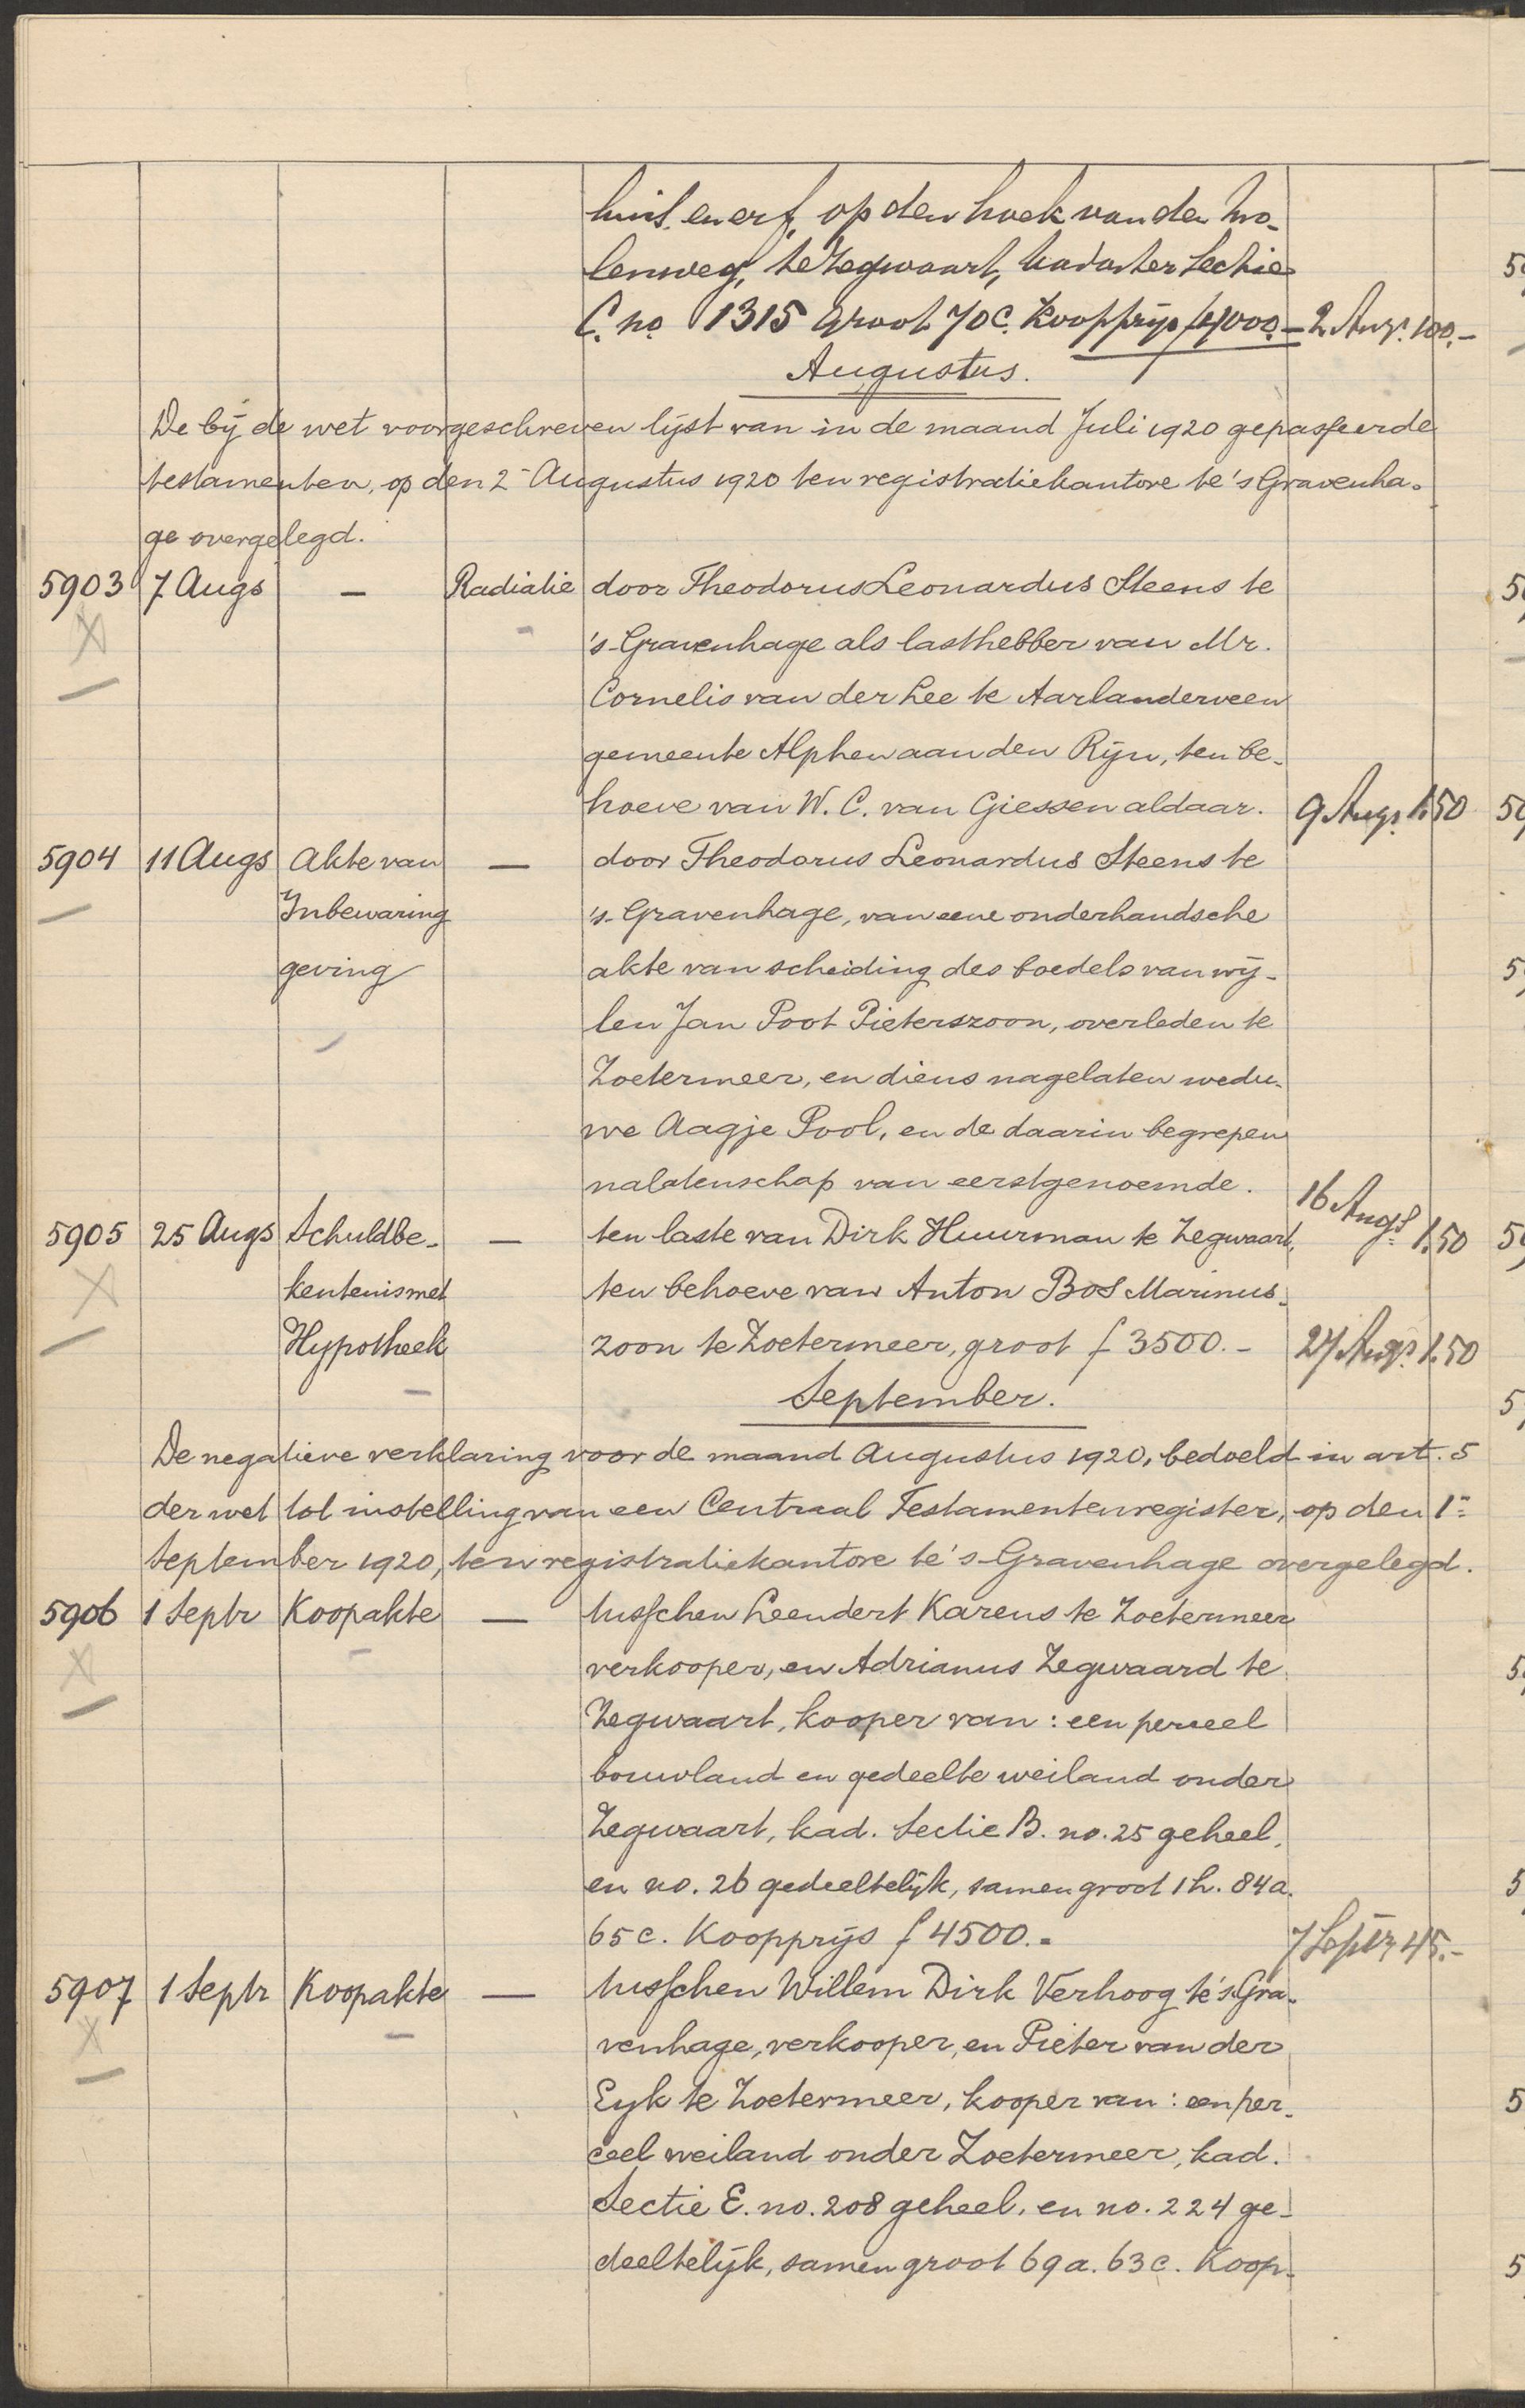 huis en erf, op den hoek van den Mo-
lenweg, te Zegwaart, kadaster Sectie
C. no 1315 groot 70 c. Koopprijs f 4000.- 2 Augs. 100.-
Augustus.
De bij de wet voorgeschreven lijst van in de maand Juli 1920 gepasseerde
testamenten, op den 2n Augustus 1920 ten registratiekantore te 's Gravenha-
ge overgelegd.
5903 7 Augs - Radiatie door Theodorus Leonardus Steens te
's-Gravenhage als lasthebber van Mr.
Cornelis van der Lee te Aarlanderveen
gemeente Alphen aan den Rijn, ten be-
hoeve van W. C. van Giessen aldaar. 9 Augs. 1.50
5904 11 Augs Akte van - door Theodorus Leonardus Steens te
Inbewaring 's-Gravenhage, van eene onderhandsche
geving akte van scheiding des boedels van wij-
len Jan Poot Pieterszoon, overleden te
Zoetermeer, en diens nagelaten wedu-
we Aagje Pool, en de daarin begrepen
nalatenschap van eerstgenoemde. 16 Augs. 1.50
5905 25 Augs Schuldbe- - ten laste van Dirk Huurman te Zegwaart,
kentenis met ten behoeve van Anton Bos Marinus-
Hypotheek zoon te Zoetermeer, groot f 3500.- 27 Augs. 1.50
September.
De negatieve verklaring voor de maand Augustus 1920, bedoeld in art. 5
der wet tot instelling van een Centraal Testamentenregister, op den 1n
September 1920, ten registratiekantore te 's-Gravenhage overgelegd.
5906 1 Septr Koopakte - tusschen Leendert Karens te Zoetermeer
verkooper, en Adrianus Zegwaard te
Zegwaart, kooper van: een perceel
bouwland en gedeelte weiland onder
Zegwaart, kad. Sectie B. no. 25 geheel,
en no. 26 gedeeltelijk, samen groot 1 h. 84 a.
65 c. Koopprijs f 4500.- 7 Septr 45.-
5907 1 Septr Koopakte - tusschen Willem Dirk Verhoog te 's Gra-
venhage, verkooper, en Pieter van der
Eyk te Zoetermeer, kooper van: een per-
ceel weiland onder Zoetermeer, kad.
Sectie E. no. 208 geheel, en no. 224 ge-
deeltelijk, samen groot 69 a. 63 c. Koop-